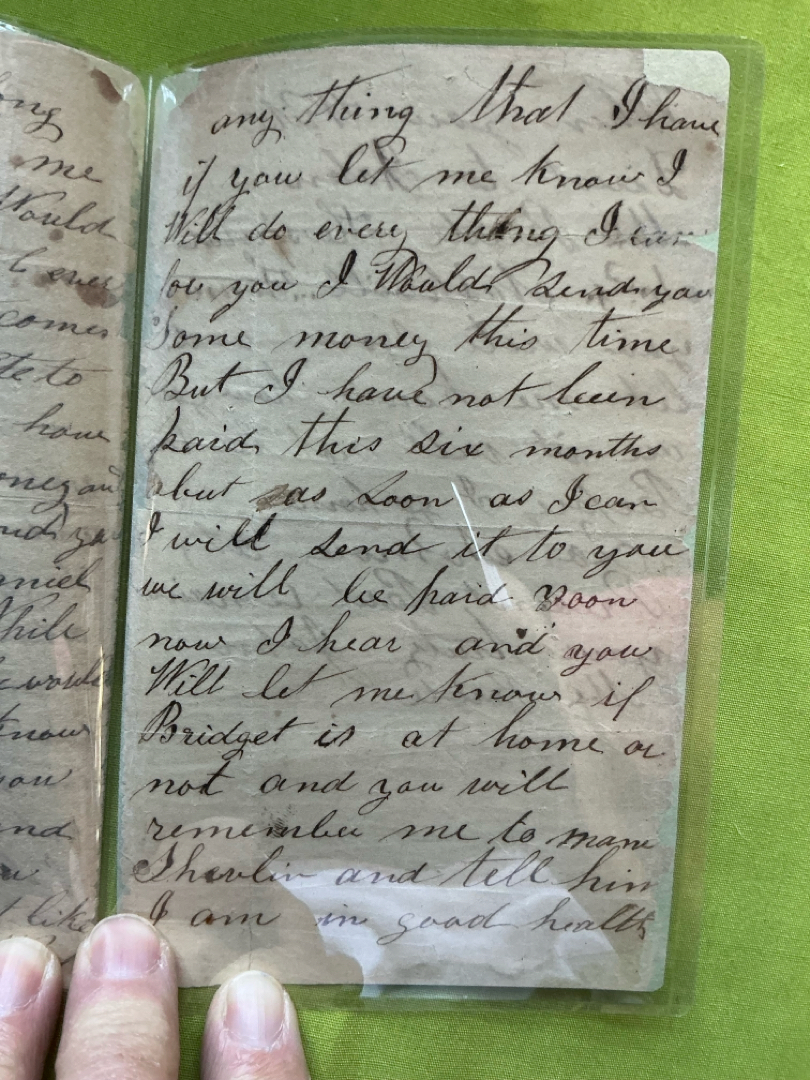 ong
me
Would
ever
comes
te to
have
money an
nd yo
niel
While
would
know
you
and
t like
any thing that I have
if you let me know I
Will do every thing I can
for you I Would send you
Some money this time
But I have not been
paid this six months
but as soon as I can
I will send it to you
we will be paid soon
now I hear and you
Will let me know if
Bridget is at home or
not and you will
remember me to
Shevlin and tell him
I am in good health